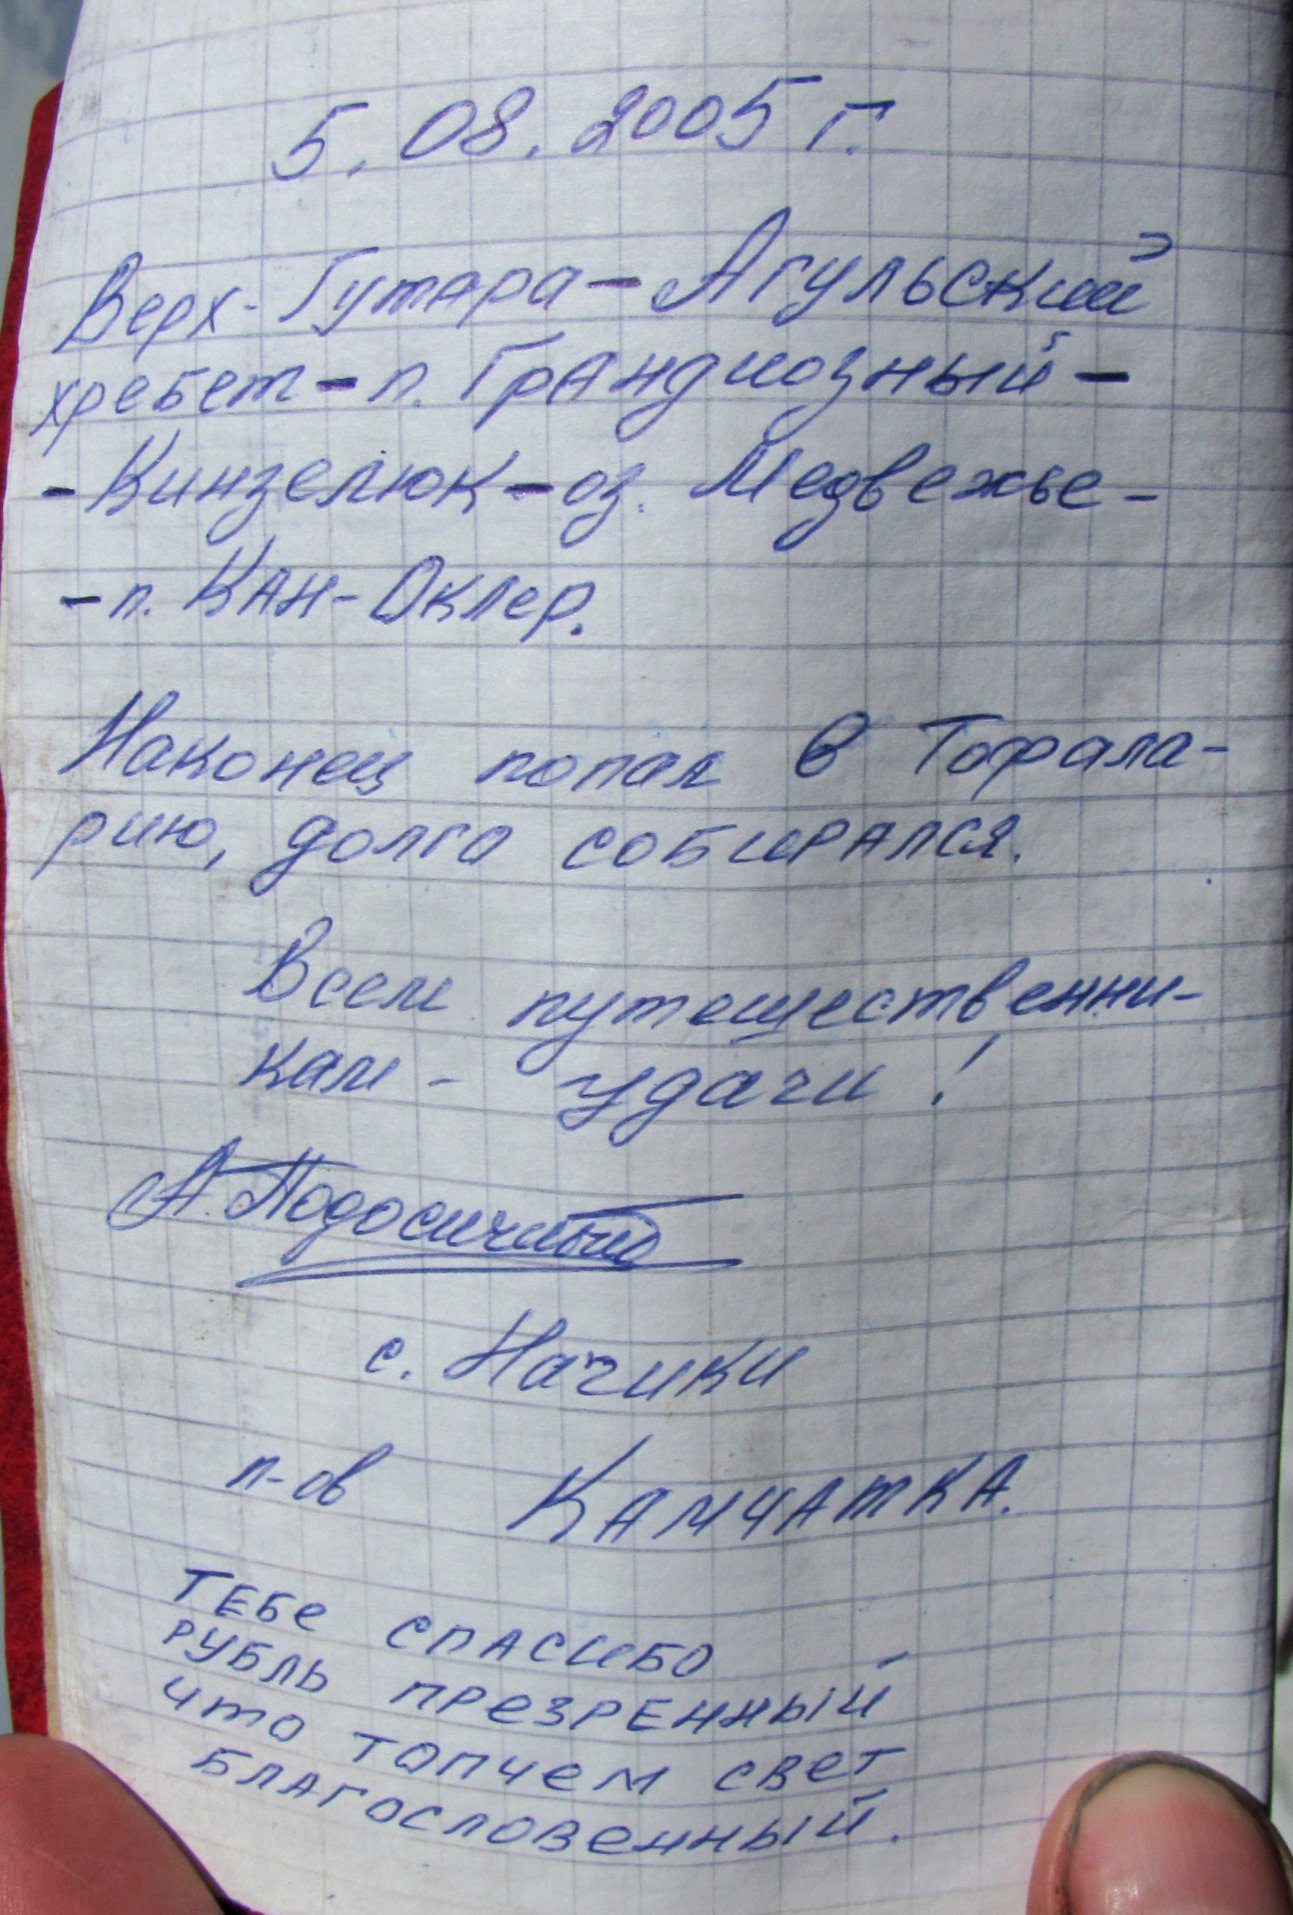 5. 08. 2005 г.
Верх-Гутара-Агульский
хребет-п. Грандиозный-
-Кинзелюк-оз. Медвежье-
-п. Кан-Оклер.
Наконец попал в Тофала-
рию, долго собирался.
Всем путешественни-
кам - удачи!
А.
с. Начики
п-ов Камчатка.
ТЕБЕ СПАСИБО
РУБЛЬ ПРЕЗРЕННЫЙ
ЧТО ТОПЧЕМ СВЕТ
БЛАГОСЛОВЕННЫЙ.